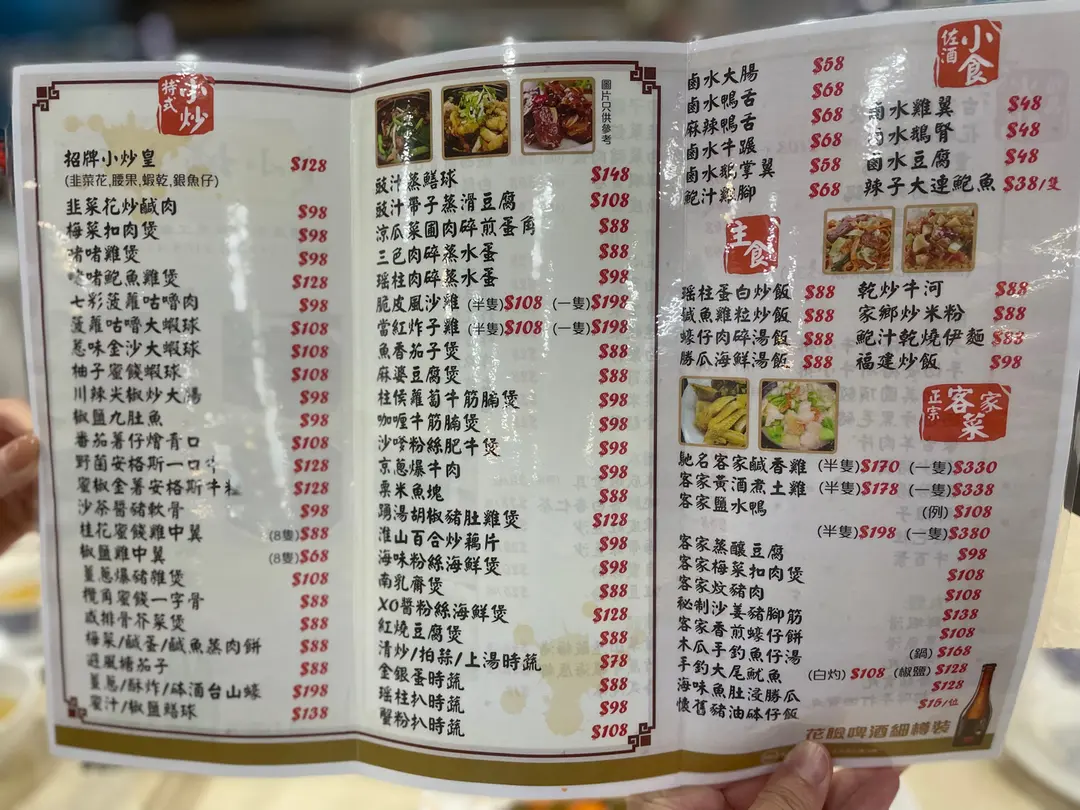 特式小炒
招牌小炒皇 $128
(韭菜花,腰果,蝦乾,銀魚仔)
韭菜花炒鹹肉 $98
梅菜扣肉煲 $98
啫啫雞煲 $98
啫啫鮑魚雞煲 $128
七彩菠蘿咕嚕肉 $98
菠蘿咕嚕大蝦球 $108
蔥味金沙大蝦球 $108
柚子蜜餞蝦球 $108
川辣尖椒炒大腸 $98
椒鹽九肚魚 $98
番茄薯仔燴青口 $108
野菌安格斯一口牛 $128
蜜椒金薯安格斯牛粒 $128
沙茶醬豬軟骨 $98
桂花蜜餞雞中翼 (8隻)$88
椒鹽雞中翼 (8隻)$68
薑蔥爆豬雜煲 $108
欖角蜜餞一字骨 $88
咸排骨芥菜煲 $88
梅菜/鹹蛋/鹹魚蒸肉餅 $88
避風塘茄子 $88
薑蔥/酥炸/砵酒台山蠔 $198
蜜汁/椒鹽鱔球 $138
圖片只供參考
豉汁蒸鱔球 $148
豉汁帶子蒸滑豆腐 $108
涼瓜菜圃肉碎煎蛋角 $88
三色肉碎蒸水蛋 $88
瑤柱肉碎蒸水蛋 $98
脆皮風沙雞 (半隻)$108 (一隻)$198
當紅炸子雞 (半隻)$108 (一隻)$198
魚香茄子煲 $88
麻婆豆腐煲 $88
柱侯蘿蔔牛筋腩煲 $98
咖喱牛筋腩煲 $98
沙嗲粉絲肥牛煲 $98
京蔥爆牛肉 $98
粟米魚塊 $88
踢湯胡椒豬肚雞煲 $128
淮山百合炒藕片 $98
海味粉絲海鮮煲 $98
南乳齋煲 $88
XO醬粉絲海鮮煲 $128
紅燒豆腐煲 $88
清炒/拍蒜/上湯時蔬 $78
金銀蛋時蔬 $88
瑤柱扒時蔬 $98
蟹粉扒時蔬 $108
佐酒小食
鹵水大腸 $58
鹵水鴨舌 $68
麻辣鴨舌 $68
鹵水牛𦟌 $68
鹵水鵝掌翼 $58
鮑汁雞腳 $68
鹵水雞翼 $48
鹵水鵝腎 $48
鹵水豆腐 $48
辣子大連鮑魚 $38/隻
主食
瑤柱蛋白炒飯 $88
鹹魚雞粒炒飯 $88
蠔仔肉碎湯飯 $88
勝瓜海鮮湯飯 $88
乾炒牛河 $88
家鄉炒米粉 $88
鮑汁乾燒伊麵 $88
福建炒飯 $98
正宗客家菜
馳名客家鹹香雞 (半隻)$170 (一隻)$330
客家黃酒煮土雞 (半隻)$178 (一隻)$338
客家鹽水鴨 (例)$108
(半隻)$198 (一隻)$380
客家蒸釀豆腐 $98
客家梅菜扣肉煲 $108
客家炆豬肉 $108
秘制沙姜豬腳筋 $138
客家香煎蠔仔餅 $108
木瓜手釣魚仔湯 (鍋)$168
手釣大尾魷魚 (白灼)$108 (椒鹽)$128
海味魚肚浸勝瓜 $128
懷舊豬油砵仔飯 $15/位
花雕啤酒細樽裝